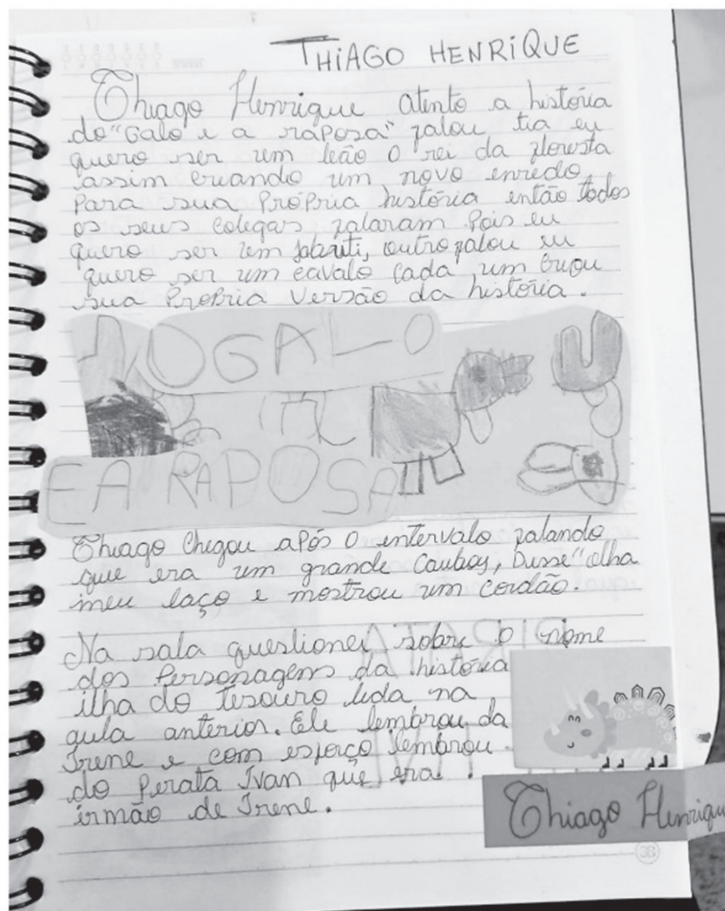 THIAGO HENRIQUE
Thiago Henrique atento a história
do "Galo e a raposa" falou tia eu
quero ser um leão o rei da floresta
assim criando um novo enredo
para sua própria história então todos
os seus colegas falaram pois eu
quero ser um jabuti, outro falou eu
quero ser um cavalo cada um criou
sua própria versão da história.
O GALO
E A RAPOSA
Thiago chegou após o intervalo falando
que era um grande Cauboy, Disse "olha
meu laço e mostrou um cordão.
Na sala questionei sobre o nome
dos personagens da história
ilha do Tesouro lida na
aula anterior. Ele lembrou da
Irene e com esforço lembrou
do Perata Ivan que era
irmão de Irene.
Thiago Henriqu